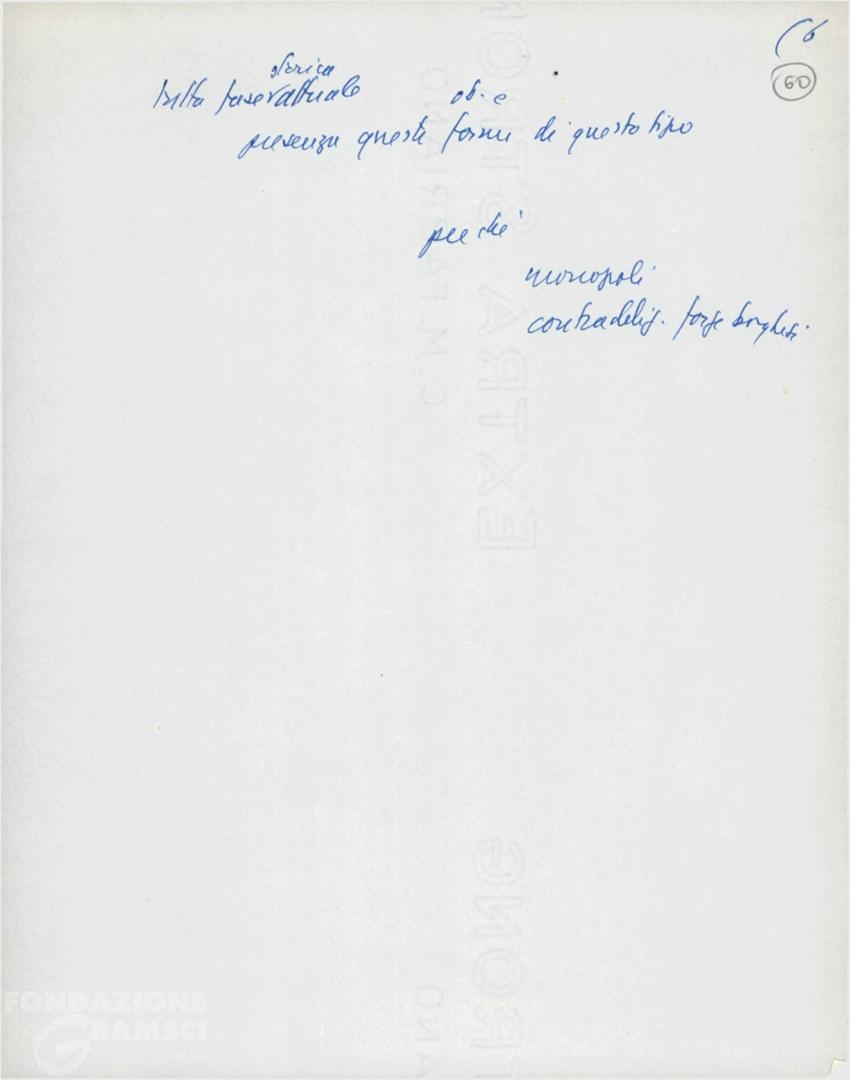 (6
60
storica
tutta fase attuale
ob. e
presenza queste forme di questo tipo
perché
monopoli
contraddiz. forze borghesi
C. M. FABRIANO
EXTRA STRONG
FONDAZIONE
GRAMSCI